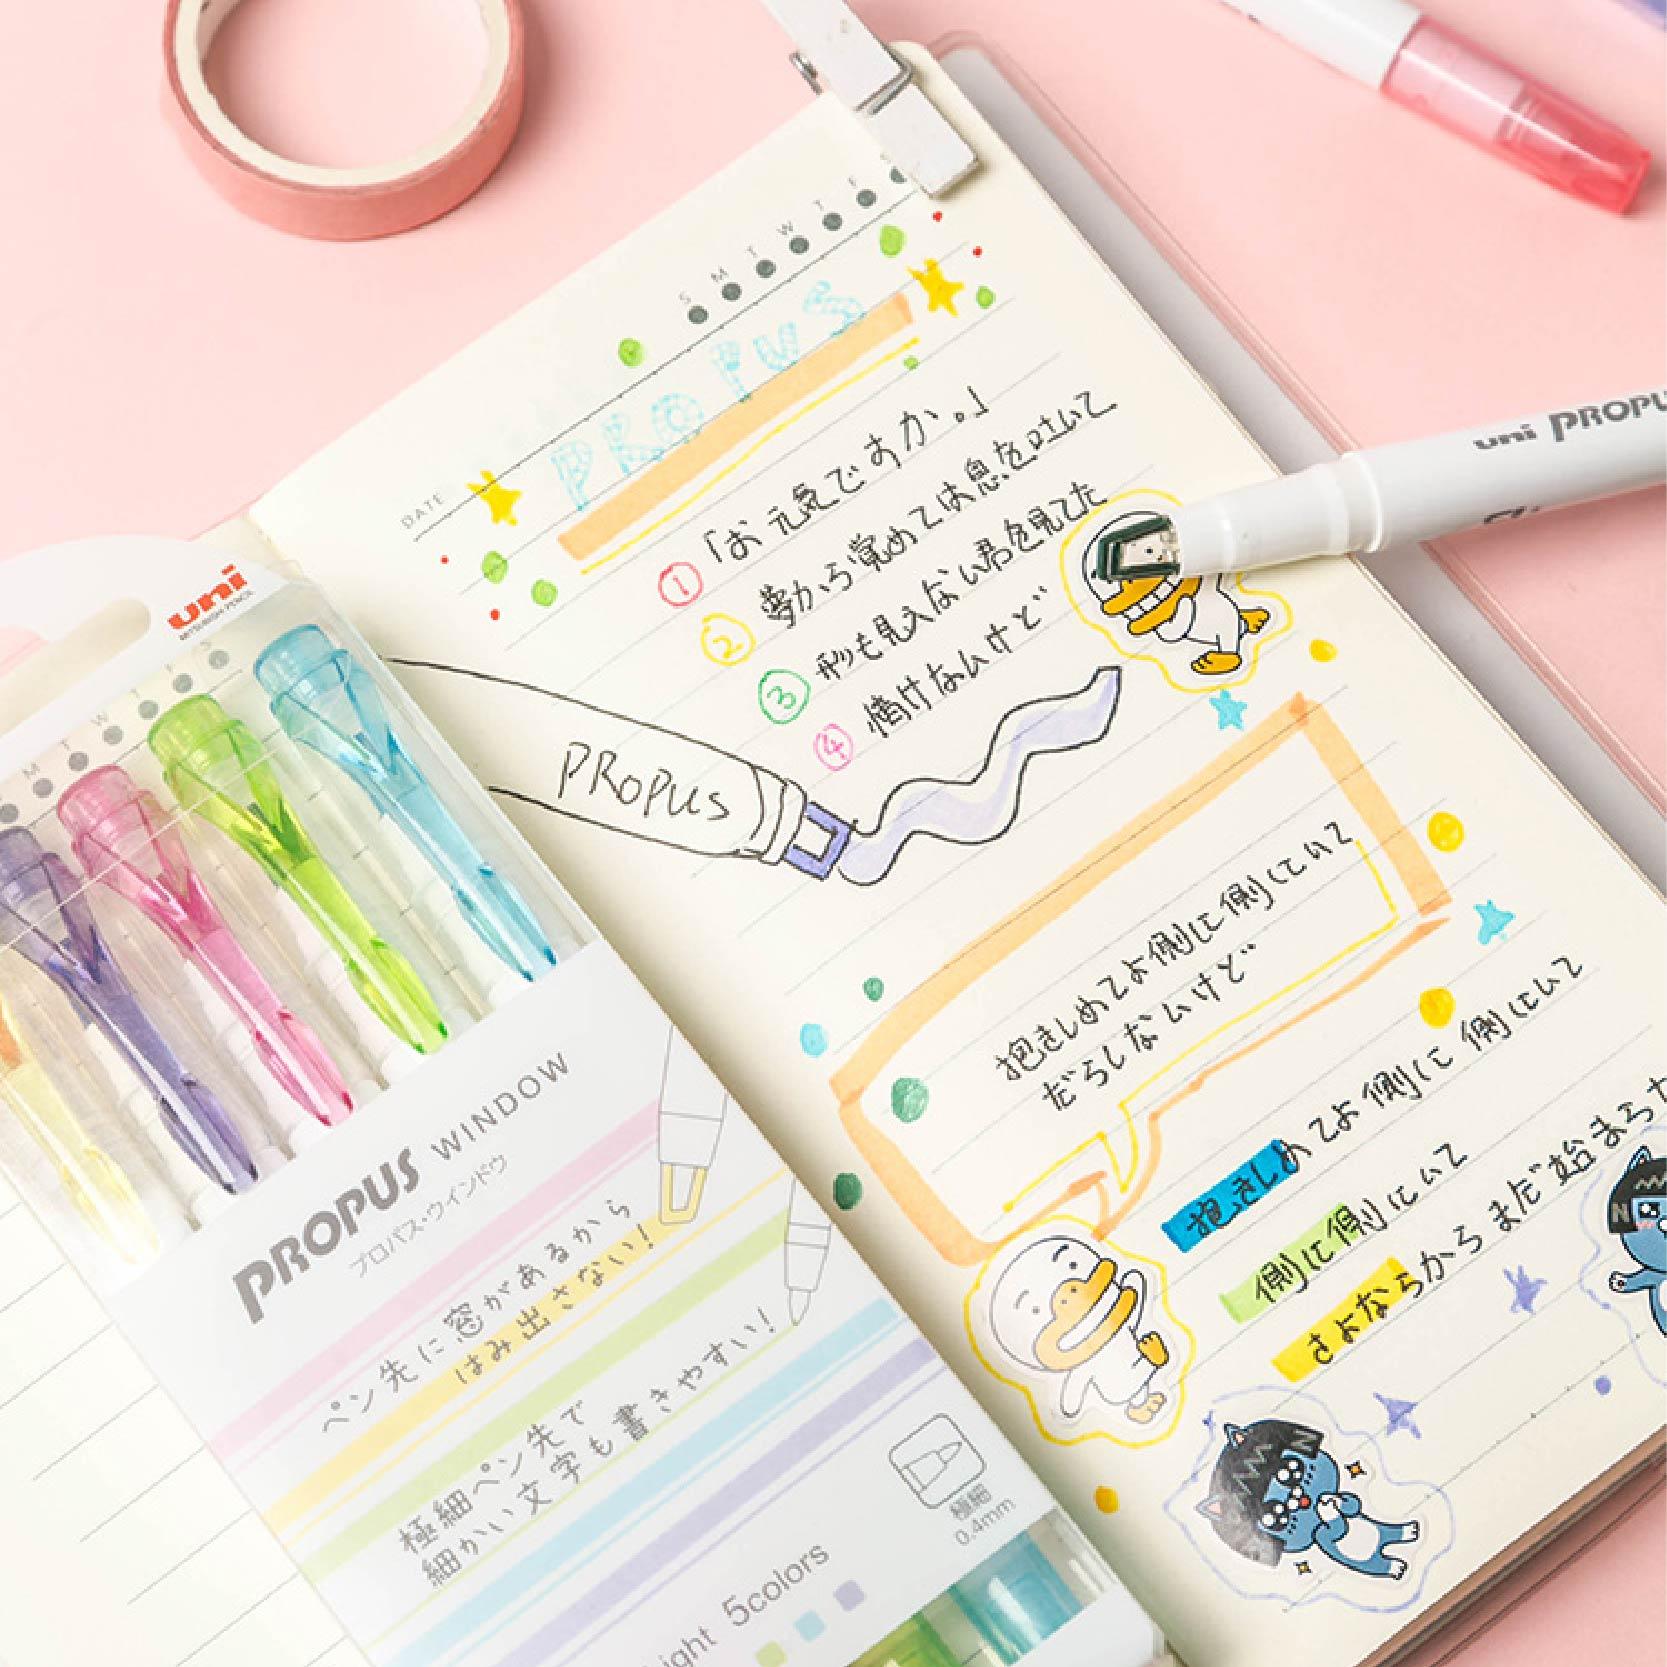 uni PROPUS
S M T W T F S
DATE
PROPUS
① 「お元気ですか。」
② 夢から覚めては息を吐いて
③ 形も見えない君を見てた
④ 情けないけど
PROPUS
抱きしめてよ側に側にいて
だらしないけど
抱きしめてよ側に側にいて
側に側にいて
さよならからまだ始まらな
uni
MITSUBISHI PENCIL
M T W T F S
PROPUS WINDOW
プロパス・ウインドウ
ペン先に窓があるから
はみ出さない!
極細ペン先で
細かい文字も書きやすい!
極細
0.4mm
ight 5colors